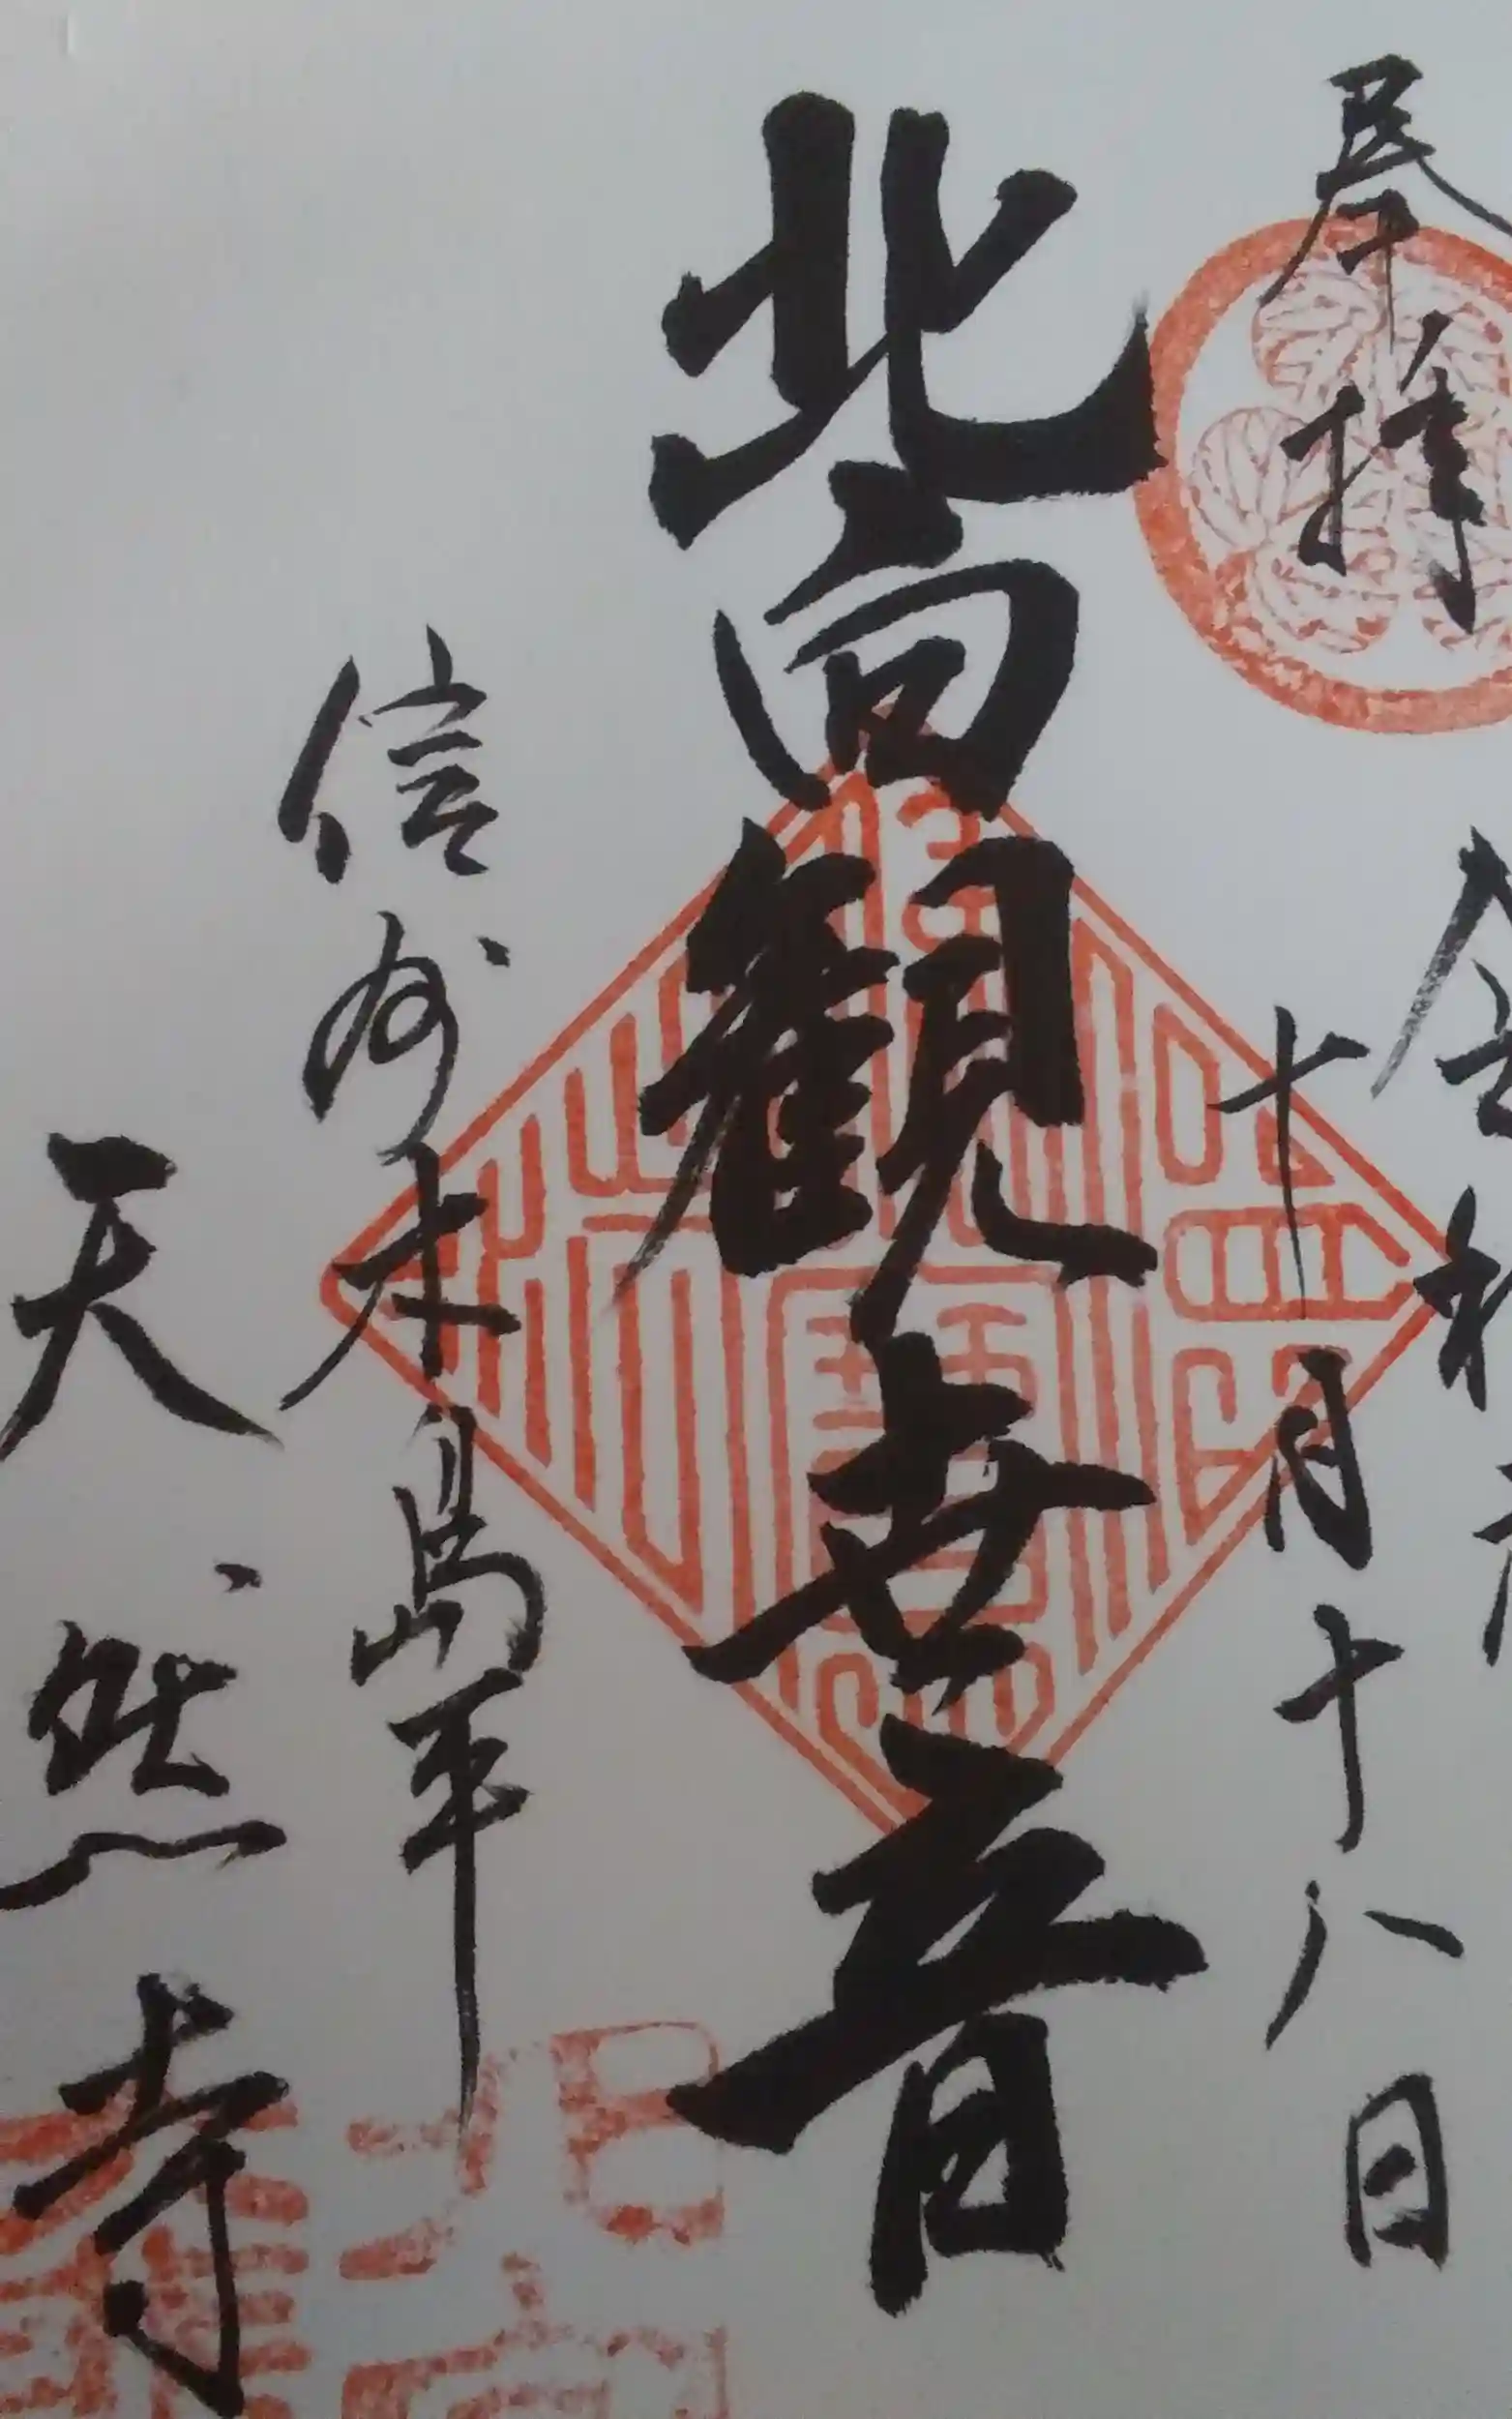 奉拝
令和
十月十八日
北向観世音
信州木島平
天然寺